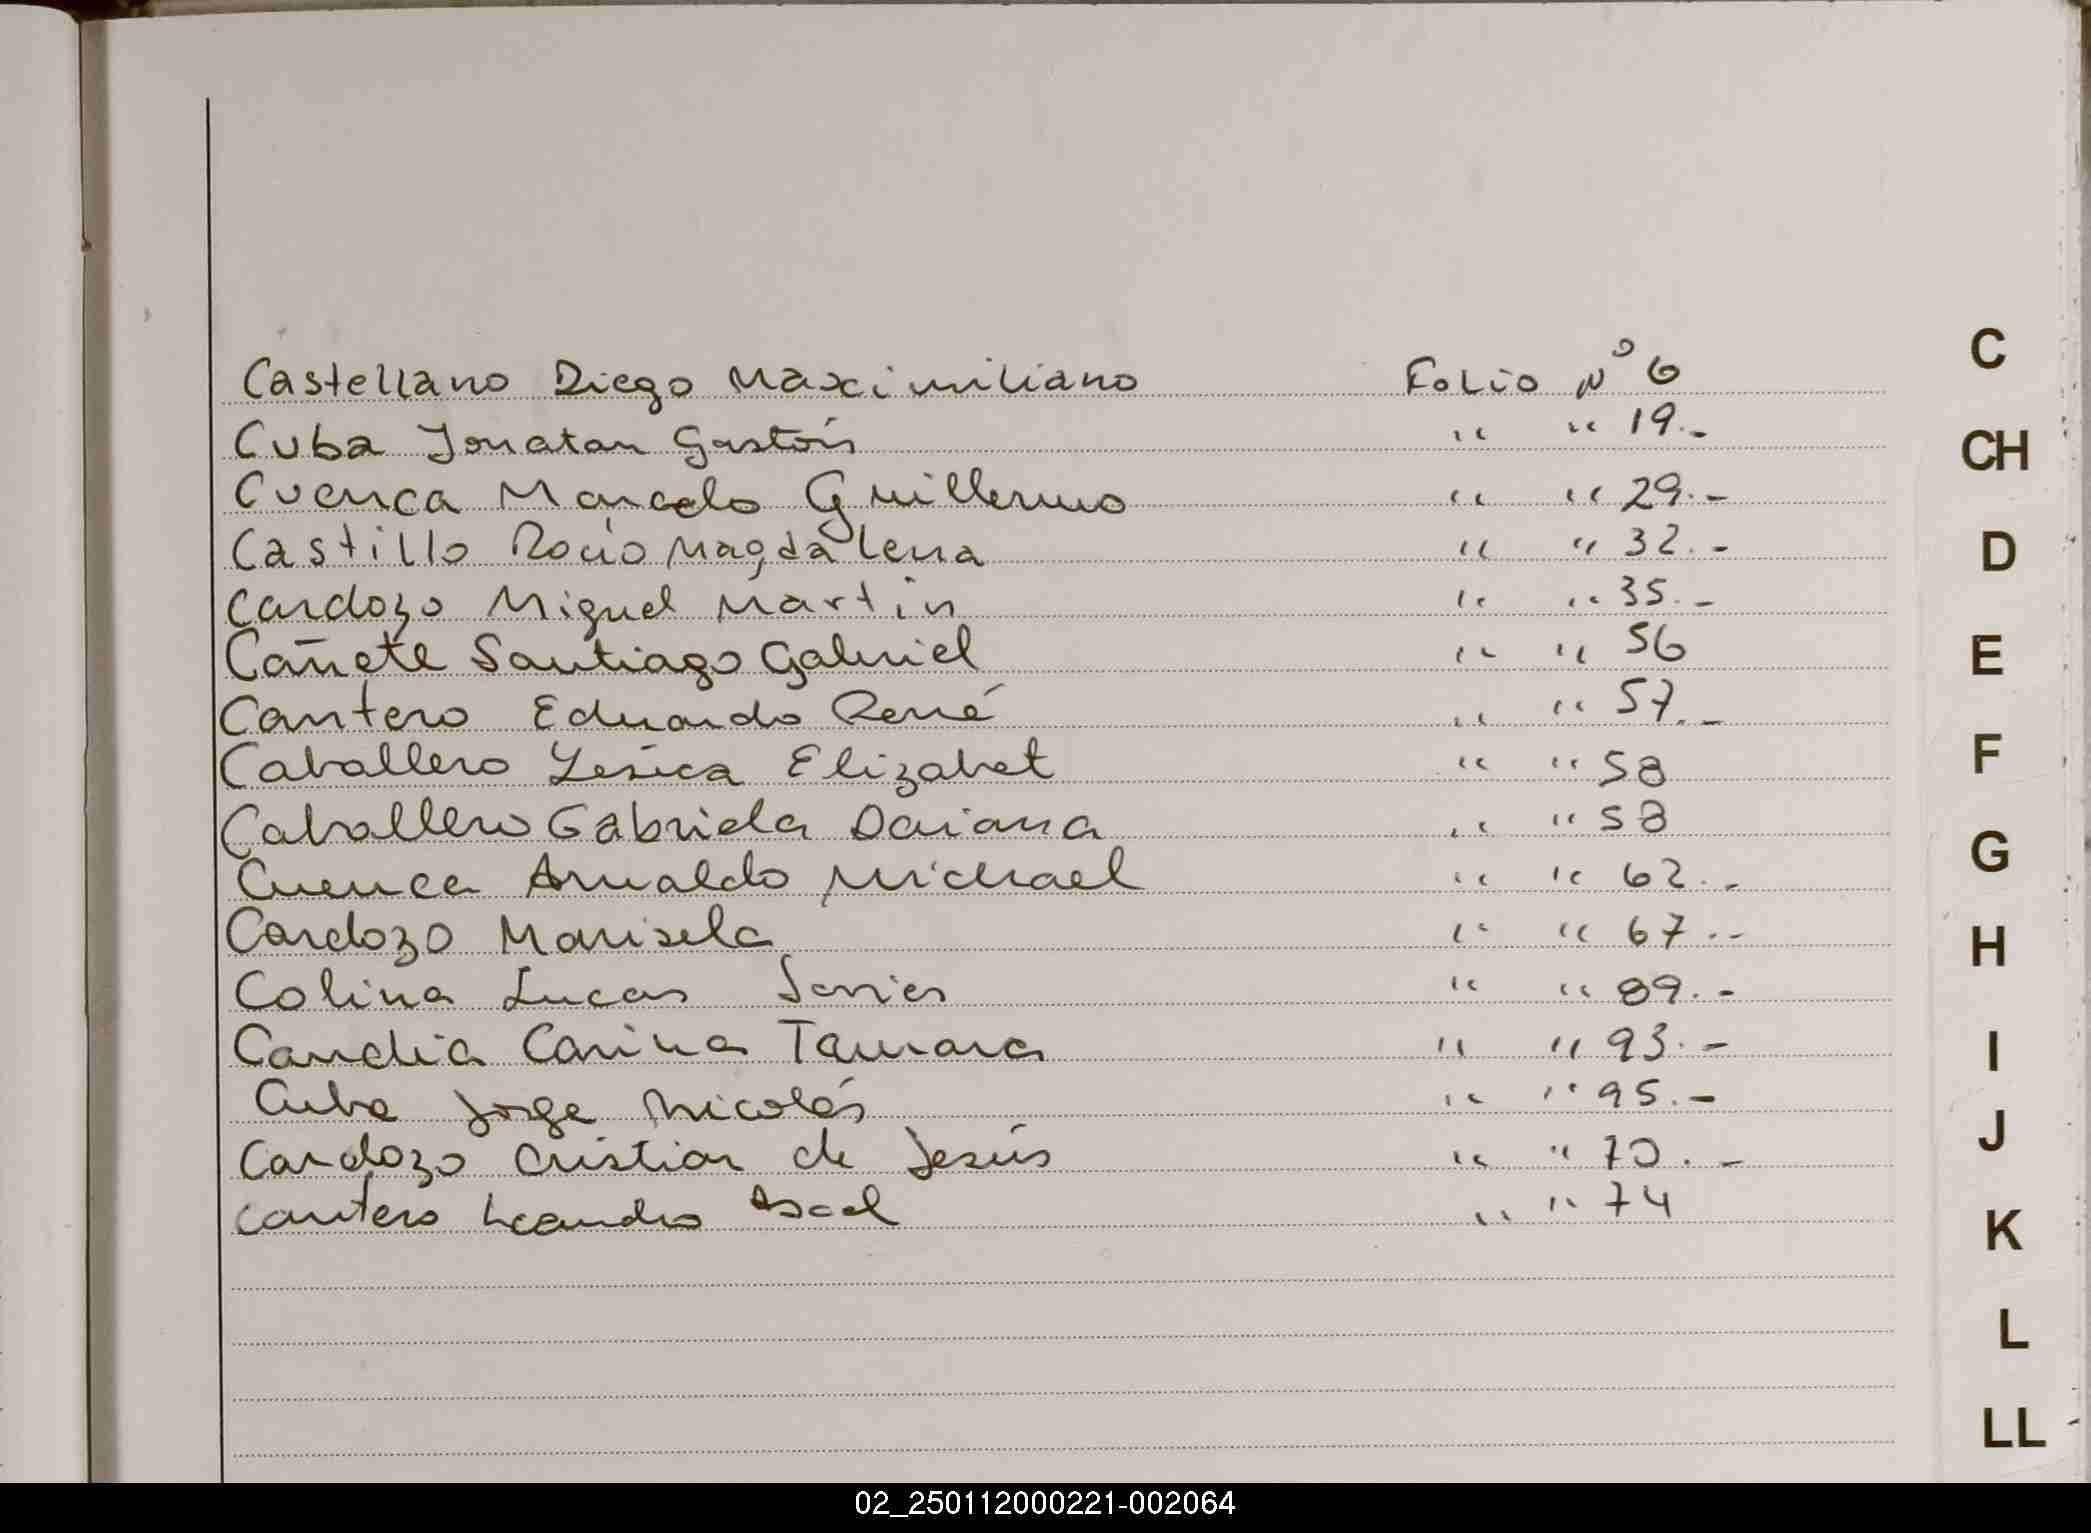 Castellano Diego Maximiliano Folio Nº 6
Cuba Jonatan Gastón " " 19.-
Cuenca Marcelo Guillermo " " 29.-
Castillo Rocio Magdalena " " 32.-
Cardozo Miguel Martin " " 35.-
Cañete Santiago Gabriel " " 56
Cantero Eduardo René " " 57.-
Caballero Yesica Elizabet " " 58
Caballero Gabriela Daiana " " 58
Cuenca Arnaldo Michael " " 62.-
Cardozo Marisela " " 67.-
Colina Lucas Javier " " 89.-
Candia Carina Tamara " " 93.-
Cuba Jorge Nicolás " " 95.-
Cardozo Cristian de Jesús " " 70.-
Cantero Leandro " " 74
C
CH
D
E
F
G
H
I
J
K
L
LL
02_250112000221-002064